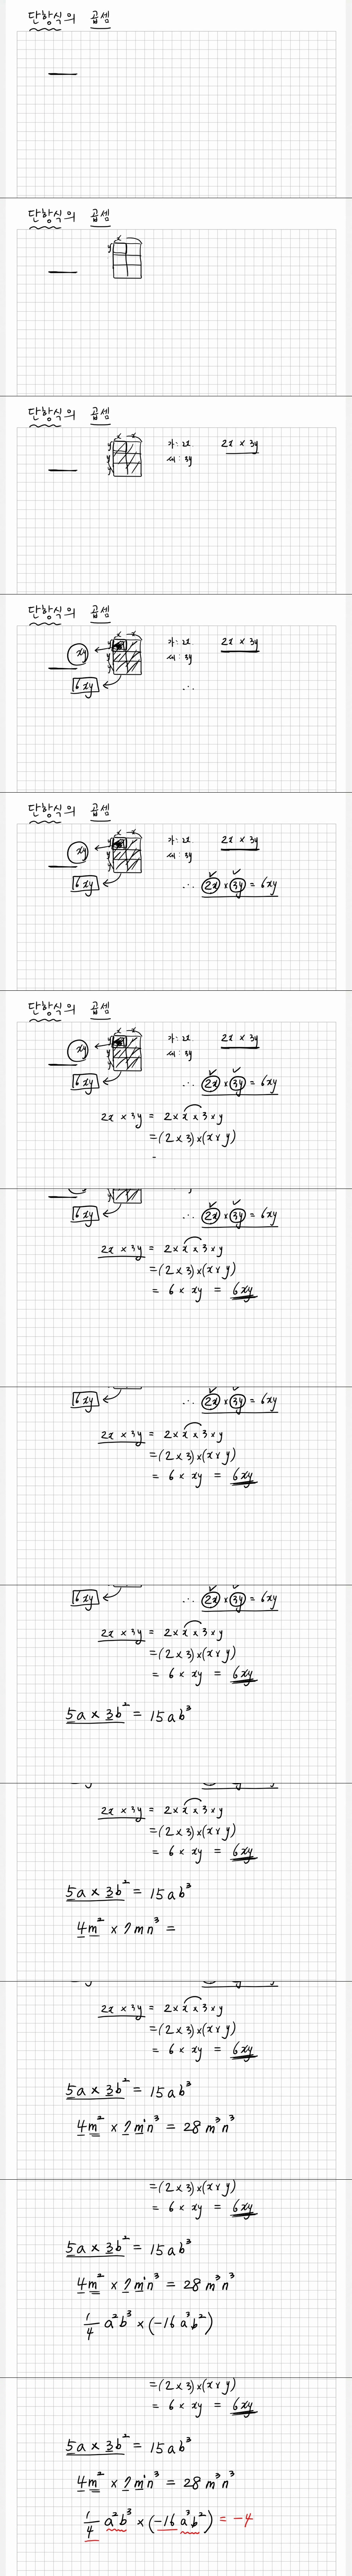 단항식의 곱셈
단항식의 곱셈
x x
y
단항식의 곱셈
x x
y 가 : 2x 2x × 3y
y 세 : 3y
y
단항식의 곱셈
x x
xy y 가 : 2x 2x × 3y
y 세 : 3y
6xy y ∴
단항식의 곱셈
x x
xy y 가 : 2x 2x × 3y
y 세 : 3y
6xy y ∴ 2x × 3y = 6xy
단항식의 곱셈
x x
xy y 가 : 2x 2x × 3y
y 세 : 3y
6xy y ∴ 2x × 3y = 6xy
2x × 3y = 2 × x × 3 × y
= (2 × 3) × (x × y)
6xy ∴ 2x × 3y = 6xy
2x × 3y = 2 × x × 3 × y
= (2 × 3) × (x × y)
= 6 × xy = 6xy
6xy ∴ 2x × 3y = 6xy
2x × 3y = 2 × x × 3 × y
= (2 × 3) × (x × y)
= 6 × xy = 6xy
6xy ∴ 2x × 3y = 6xy
2x × 3y = 2 × x × 3 × y
= (2 × 3) × (x × y)
= 6 × xy = 6xy
5a × 3b² = 15ab³
2x × 3y = 2 × x × 3 × y
= (2 × 3) × (x × y)
= 6 × xy = 6xy
5a × 3b² = 15ab³
4m² × 7mn³ =
2x × 3y = 2 × x × 3 × y
= (2 × 3) × (x × y)
= 6 × xy = 6xy
5a × 3b² = 15ab³
4m² × 7m¹n³ = 28m³n³
= (2 × 3) × (x × y)
= 6 × xy = 6xy
5a × 3b² = 15ab³
4m² × 7m¹n³ = 28m³n³
1/4 a²b³ × (-16a³b²)
= (2 × 3) × (x × y)
= 6 × xy = 6xy
5a × 3b² = 15ab³
4m² × 7m¹n³ = 28m³n³
1/4 a²b³ × (-16a³b²) = -4